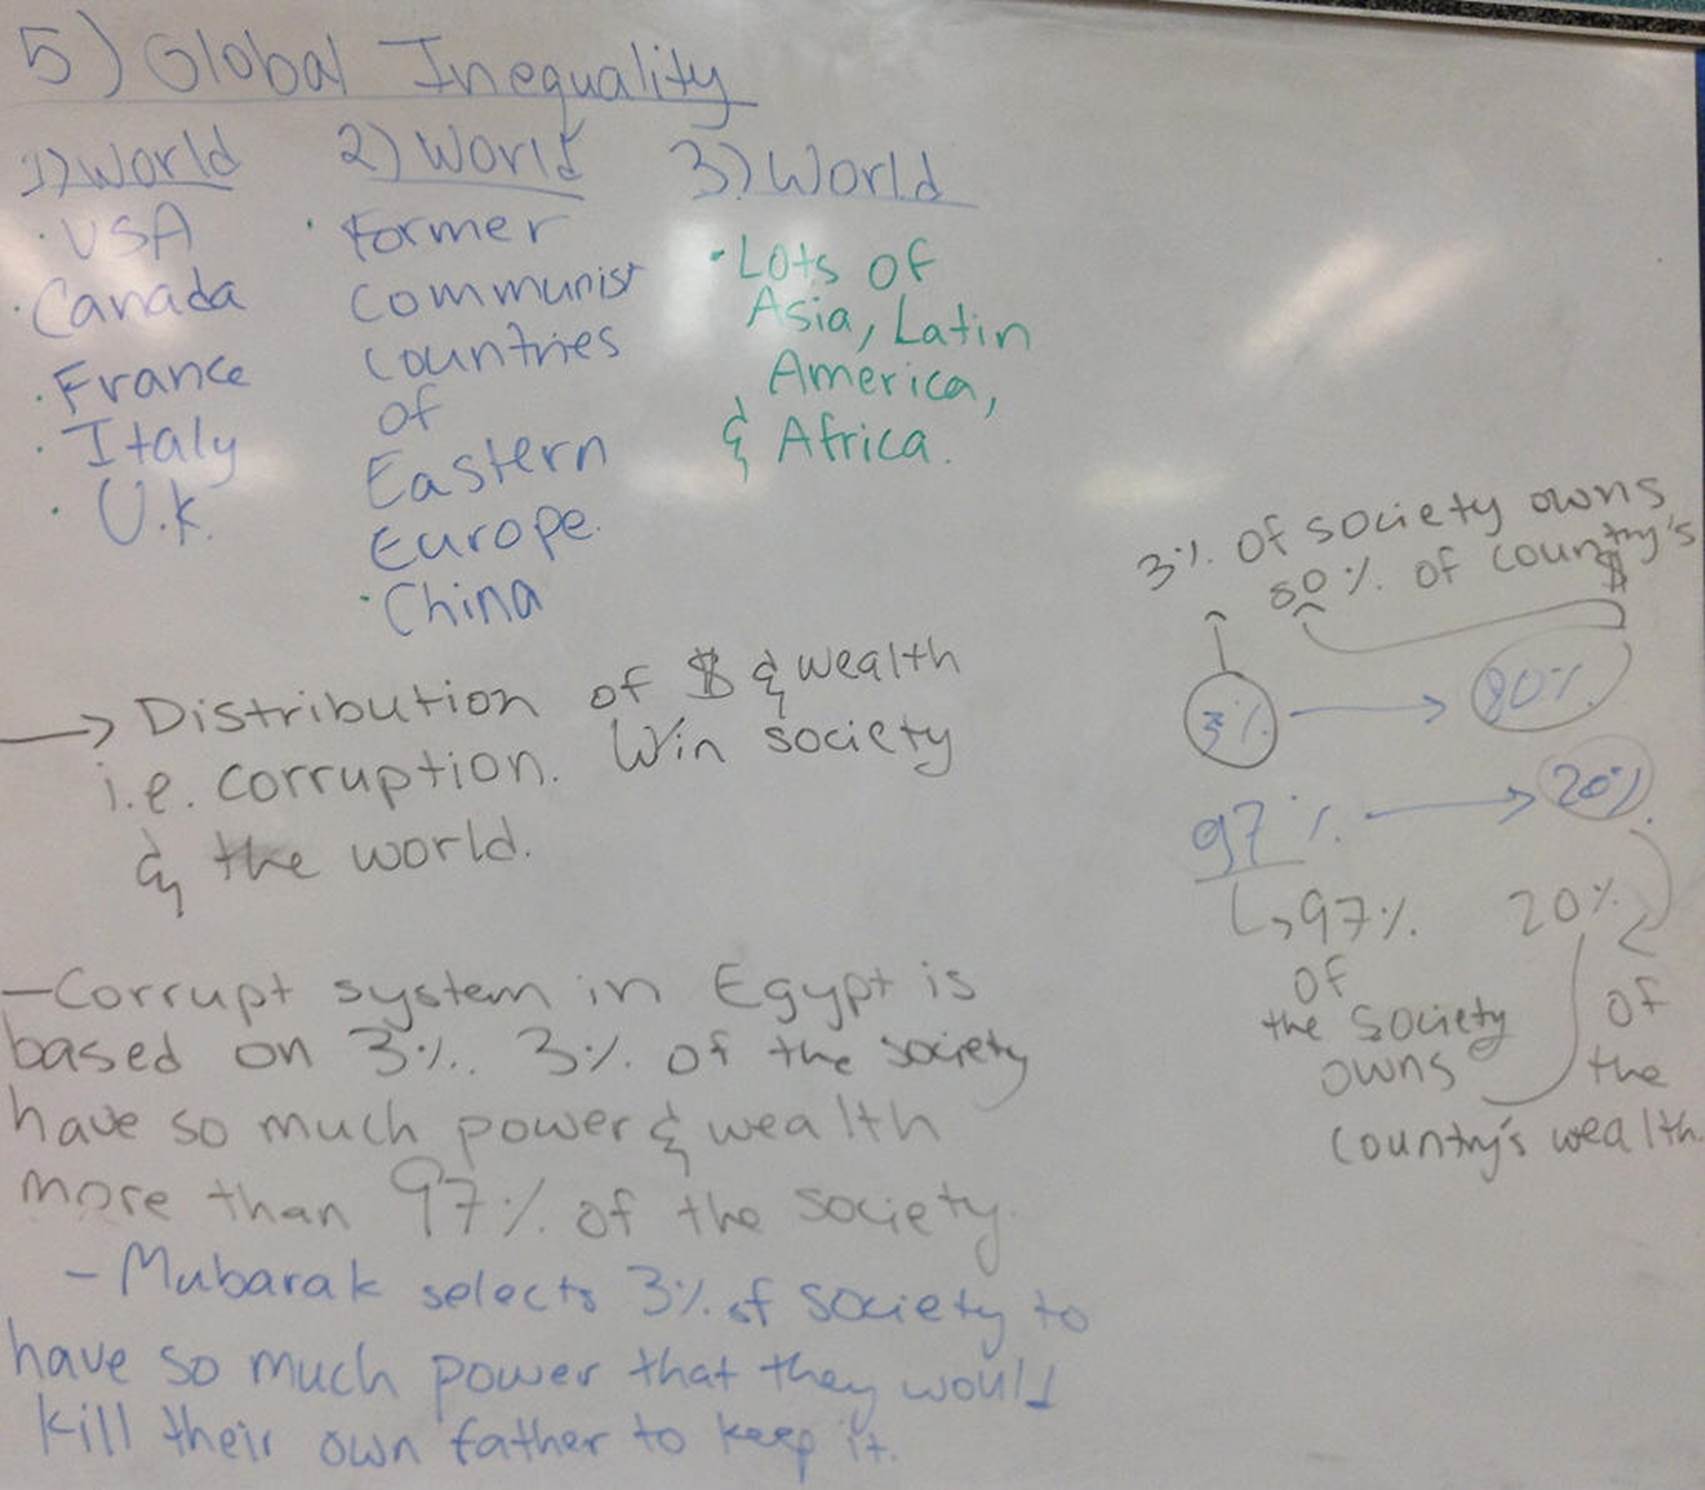 5) Global Inequality
1) World
· USA
· Canada
· France
· Italy
· U.K.
2) World
· Former
Communist
countries
of
Eastern
Europe.
· China
3) World
· Lots of
Asia, Latin
America,
& Africa.
→ Distribution of $ & wealth
i.e. corruption. W/in society
& the world.
- Corrupt system in Egypt is
based on 3%. 3% of the society
have so much power & wealth
more than 97% of the society.
- Mubarak selects 3% of society to
have so much power that they would
kill their own father to keep it.
3% of society owns
80% of country's
$
3% → 80%
97% → 20%
↳ 97% 20%
of of
the society the
owns
country's wealth.